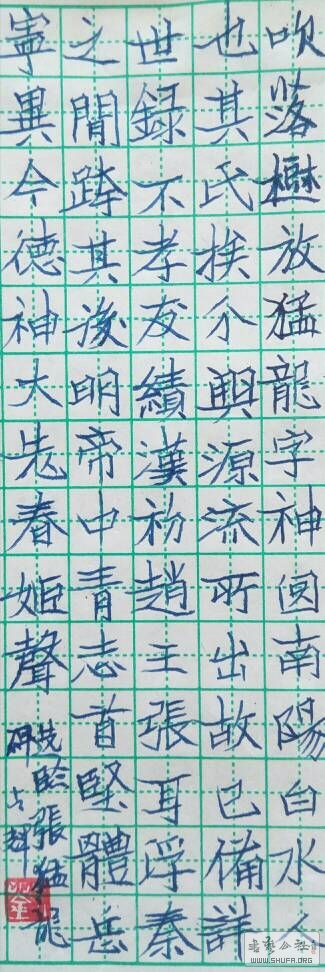 吹落放猛龍字神囧南陽白水人
也其氏族分興源流所出故已備詳
世録不孝友績漢初趙王張耳浮秦
之間跨其後明帝中青志首堅體岳
寧異今德神大先春姬聲
臨張猛龍
碑
书艺公社
WWW.SHUFA.ORG